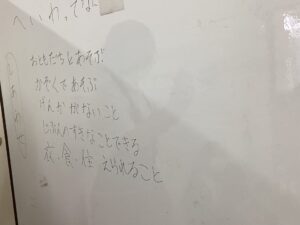 へいわってなに
しあわせ
おともだちとあそぶ
かぞくであそぶ
けんかがないこと
じぶんのすきなことできる
衣・食・住 えられること